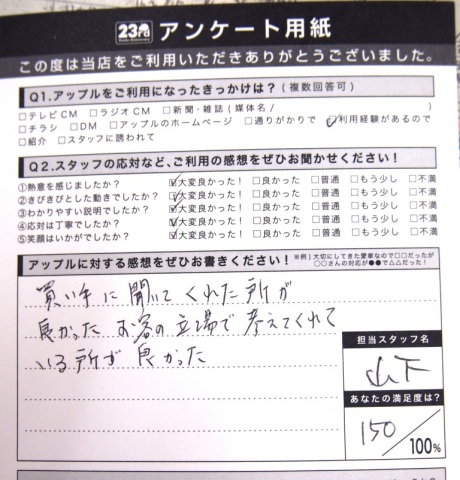 23rd アンケート用紙
この度は当店をご利用いただきありがとうございました。
Q1.アップルをご利用になったきっかけは？(複数回答可)
□テレビCM □ラジオCM □新聞・雑誌(媒体名/ )
□チラシ □DM □アップルのホームページ □通りがかりで ☑利用経験があるので
□紹介 □スタッフに誘われて
Q2.スタッフの応対など、ご利用の感想をぜひお聞かせください！
①熱意を感じましたか？ ☑大変良かった！ □良かった □普通 □もう少し □不満
②きびきびとした動きでしたか？ ☑大変良かった！ □良かった □普通 □もう少し □不満
③わかりやすい説明でしたか？ ☑大変良かった！ □良かった □普通 □もう少し □不満
④応対は丁寧でしたか？ ☑大変良かった！ □良かった □普通 □もう少し □不満
⑤笑顔はいかがでしたか？ ☑大変良かった！ □良かった □普通 □もう少し □不満
アップルに対する感想をぜひお書きください！
※例）大切にしてきた愛車なので□□だったが
○○さんの対応が●●で△△だった！
買い手に聞いてくれた所が
良かった お客の立場で考えてくれて
いる所が良かった
担当スタッフ名
山下
あなたの満足度は？
150/100%